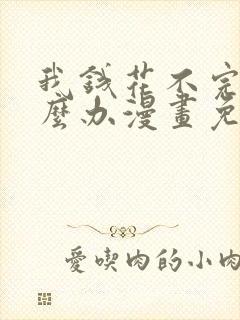 我錢花不完
麼办漫畫免
愛喫肉的小肉